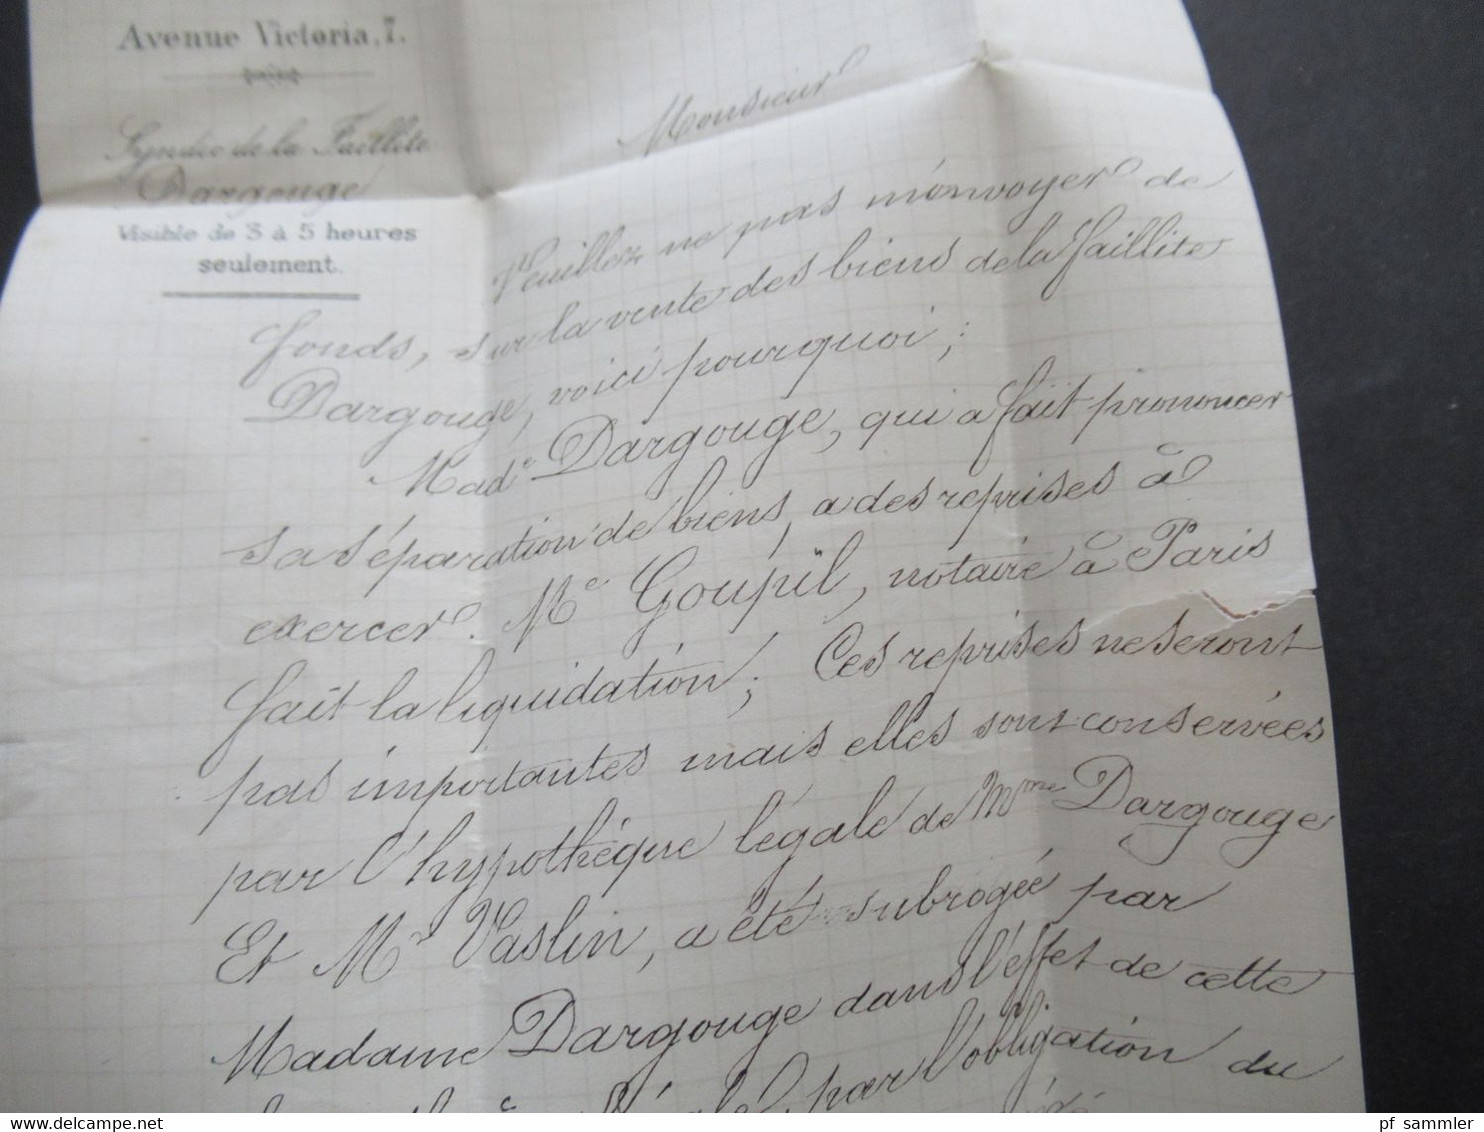 Avenue Victoria, 7.
Syndic de la Faillite
Dargouge
Visible de 3 à 5 heures
seulement.
Monsieur
Veuillez ne pas m'envoyer de
fonds, sur la vente des biens de la faillite
Dargouge, voici pourquoi;
Made Dargouge, qui a fait prononcer
sa séparation de biens, a des reprises à
exercer. Me Goupil, notaire à Paris
fait la liquidation; Ces reprises ne seront
pas importantes mais elles sont conservées
par l'hypothèque légale de Mme Dargouge
Et Mr Vaslin, a été subrogée par
Madame Dargouge dans l'effet de cette
par l'obligation du
pf_sammler